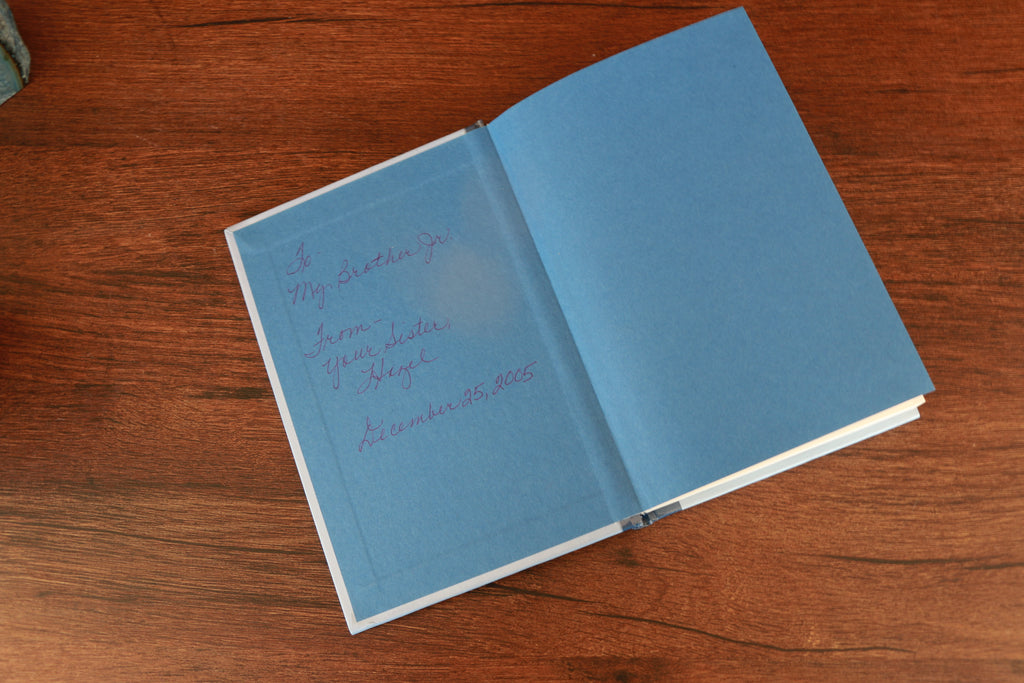 To
My Brother Jr.
From-
Your Sister,
Hazel
December 25, 2005